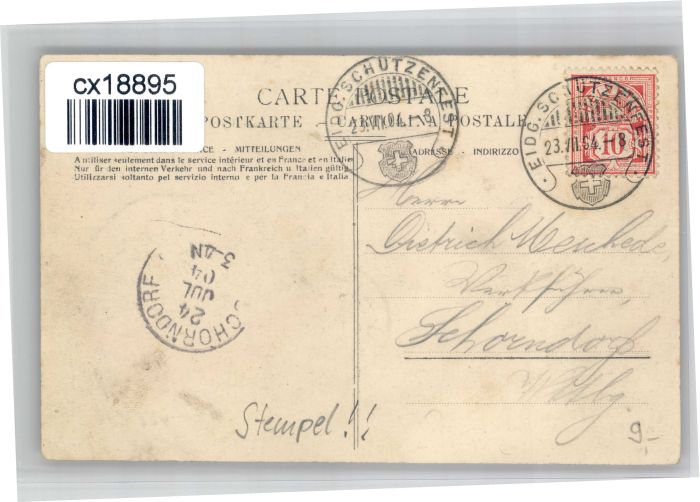 cx18895
CARTE POSTALE
POSTKARTE - CARTOLINA POSTALE
CE - MITTEILUNGEN
ADRESSE - INDIRIZZO
A utiliser seulement dans le service intérieur et en France et en Italie
Nur für den internen Verkehr und nach Frankreich u. Italien gültig
Utilizzarsi soltanto pel servizio interno e per la Francia e Italia
EIDG. SCHÜTZENFEST
23.VII.04.
EIDG. SCHÜTZENFEST
23.VII.04.1-8
10
Herrn
Dietrich Meschede,
Werkführer,
Schorndorf
Wttbg
SCHORNDORF
24
JUL
04
3-4N
Stempel!!
9-